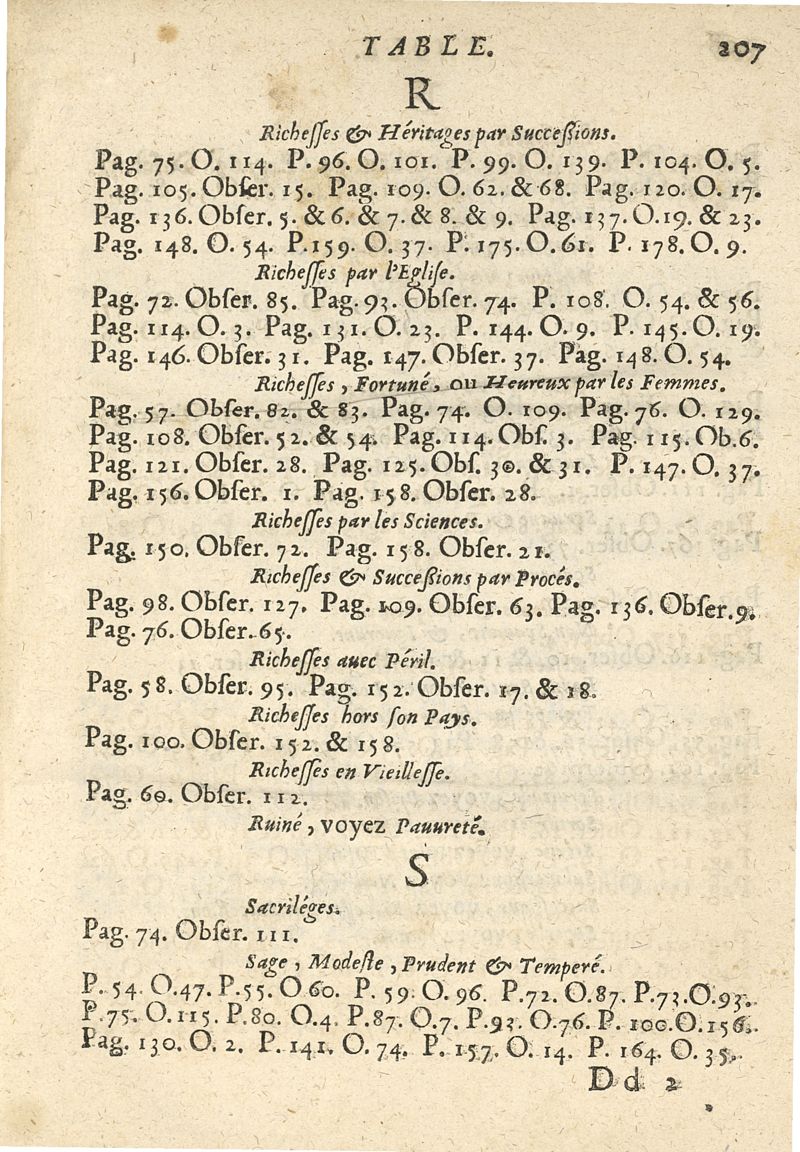 TABLE. 207
R
Richeſſes & Héritages par Succeſſions.
Pag. 75. O. 114. P. 96. O. 101. P. 99. O. 139. P. 104. O. 5.
Pag. 105. Obſer. 15. Pag. 109. O. 62. & 68. Pag. 120. O. 17.
Pag. 136. Obſer. 5. & 6. & 7. & 8. & 9. Pag. 137. O. 19. & 23.
Pag. 148. O. 54. P. 159. O. 37. P. 175. O. 61. P. 178. O. 9.
Richeſſes par l'Egliſe.
Pag. 72. Obſer. 85. Pag. 93. Obſer. 74. P. 108. O. 54. & 56.
Pag. 114. O. 3. Pag. 131. O. 23. P. 144. O. 9. P. 145. O. 19.
Pag. 146. Obſer. 31. Pag. 147. Obſer. 37. Pag. 148. O. 54.
Richeſſes, Fortuné, ou Heureux par les Femmes.
Pag. 57. Obſer. 82. & 83. Pag. 74. O. 109. Pag. 76. O. 129.
Pag. 108. Obſer. 52. & 54. Pag. 114. Obſ. 3. Pag. 115. Ob. 6.
Pag. 121. Obſer. 28. Pag. 125. Obſ. 30. & 31. P. 147. O. 37.
Pag. 156. Obſer. 1. Pag. 158. Obſer. 28.
Richeſſes par les Sciences.
Pag. 150. Obſer. 72. Pag. 158. Obſer. 21.
Richeſſes & Succeſſions par Procés.
Pag. 98. Obſer. 127. Pag. 109. Obſer. 63. Pag. 136. Obſer. 9.
Pag. 76. Obſer. 65.
Richeſſes auec Péril.
Pag. 58. Obſer. 95. Pag. 152. Obſer. 17. & 18.
Richeſſes hors ſon Pays.
Pag. 100. Obſer. 152. & 158.
Richeſſes en Vieilleſſe.
Pag. 60. Obſer. 112.
Ruiné, voyez Pauureté.
S
Sacriléges.
Pag. 74. Obſer. 111.
Sage, Modeſte, Prudent & Temperé.
P. 54. O. 47. P. 55. O 60. P. 59. O. 96. P. 72. O. 87. P. 73. O. 93.
P. 75. O. 115. P. 80. O. 4. P. 87. O. 7. P. 93. O. 76. P. 100. O. 156.
Pag. 130. O. 2. P. 141. O. 74. P. 157. O. 14. P. 164. O. 35.
Dd 2